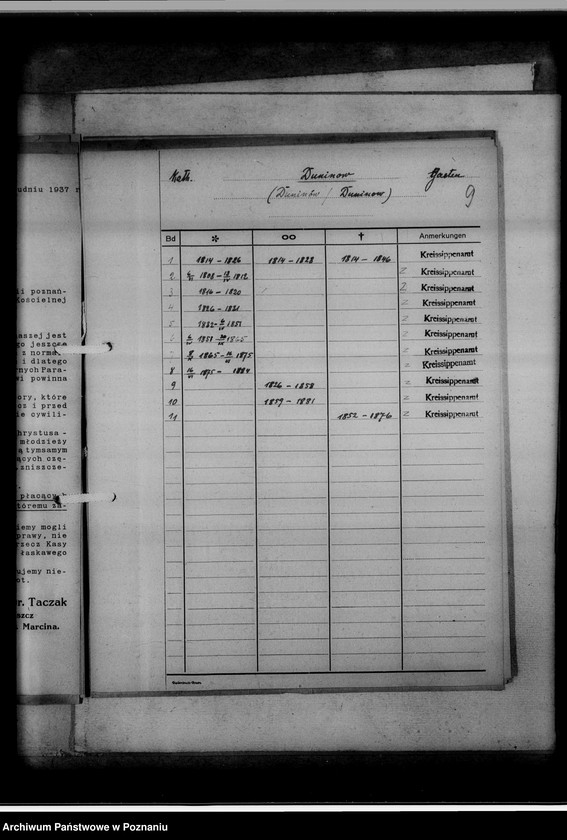 udniu 1937 r
ii poznań-
Kościelnej
aszej jest
go jeszcze
z norma
i dlatego
rnych Para-
wi powinna
ory, które
cz i przed
ie cywili-
hrystusa -
młodzieży
ą tymsamym
ących czę-
zniszcze-
płacący
tóremu za-
iemy mogli
prawy, nie
rzecz Kasy
łaskawego
ujemy nie-
ot.
r. Taczak
szcz
Marcina.
Kath. Duninow Gasten
(Duninów / Duninow) 9
Bd * ∞ † Anmerkungen
1 1814 - 1826 1814 - 1828 1814 - 1846 Kreissippenamt
2 1808 - 1812 Z Kreissippenamt
3 1814 - 1820 Z Kreissippenamt
4 1826 - 1831 Z Kreissippenamt
5 1832 - 1851 Z Kreissippenamt
6 1851 - 1865 Z Kreissippenamt
7 1865 - 1875 Z Kreissippenamt
8 1875 - 1884 Z Kreissippenamt
9 1826 - 1858 Z Kreissippenamt
10 1859 - 1881 Z Kreissippenamt
11 1852 - 1876 Z Kreissippenamt
Archiwum Państwowe w Poznaniu